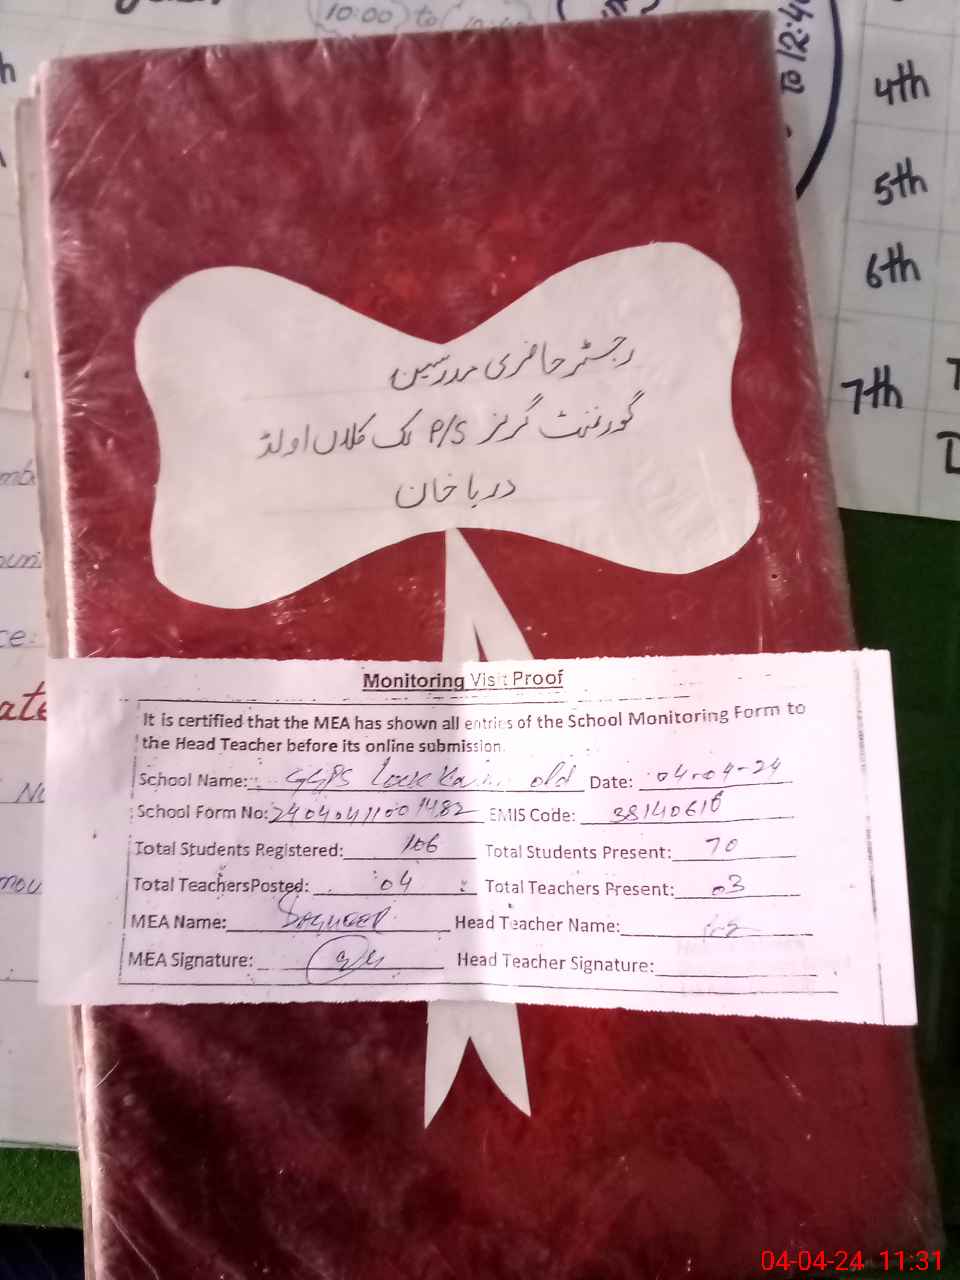 10:00 to
To 12:40
4th
5th
6th
7th
رجسٹر حاضری مدرسین
گورنمنٹ گرلز P/S لک کلاں اولڈ
دریا خان
Monitoring Visit Proof
It is certified that the MEA has shown all entries of the School Monitoring Form to
the Head Teacher before its online submission.
School Name: GGPS old Date: 04-04-24
School Form No: EMIS Code: 38140616
Total Students Registered: 106 Total Students Present: 70
Total TeachersPosted: 04 Total Teachers Present: 03
MEA Name: Head Teacher Name:
MEA Signature: Head Teacher Signature:
04-04-24 11:31